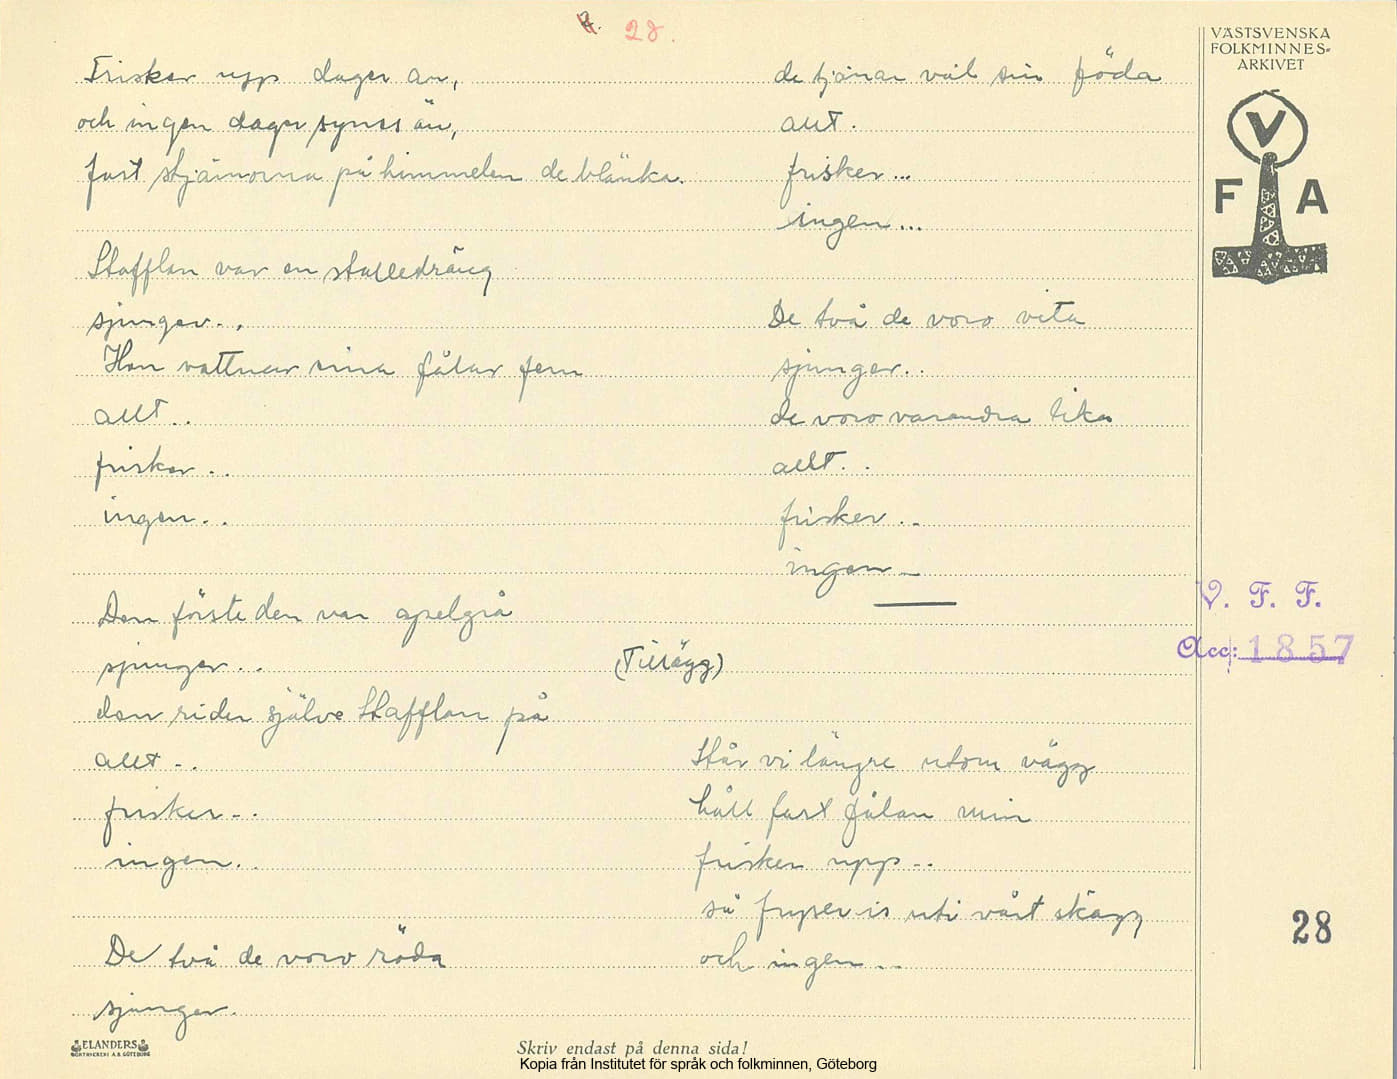 28.
Frisker upp dager än,
och ingen dager synes än,
fast stjärnorna på himmelen de blänka.
Stafflan var en stalledräng
sjunger..
Han vattnar sina fålar fem
allt..
frisker..
ingen..
Den förste den var apelgrå
sjunger..
den rider själve Stafflan på
allt..
frisker..
ingen..
De två de voro röda
sjunger.
de tjänar väl sin föda
allt.
frisker...
ingen...
De två de voro vita
sjunger..
de voro varandra lika
allt..
frisker..
ingen..
(Tillägg)
Står vi längre utom vägg
håll fast fålan min
frisker upp..
så fryser is uti vårt skägg
och ingen..
VÄSTSVENSKA
FOLKMINNES-
ARKIVET
V
F A
V. F. F.
Acc: 1857
28
ELANDERS
Skriv endast på denna sida!
Kopia från Institutet för språk och folkminnen, Göteborg